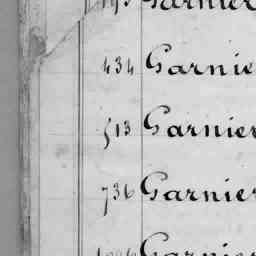 Garnier
434 Garnie
513 Garnier
736 Garnier
Garnier